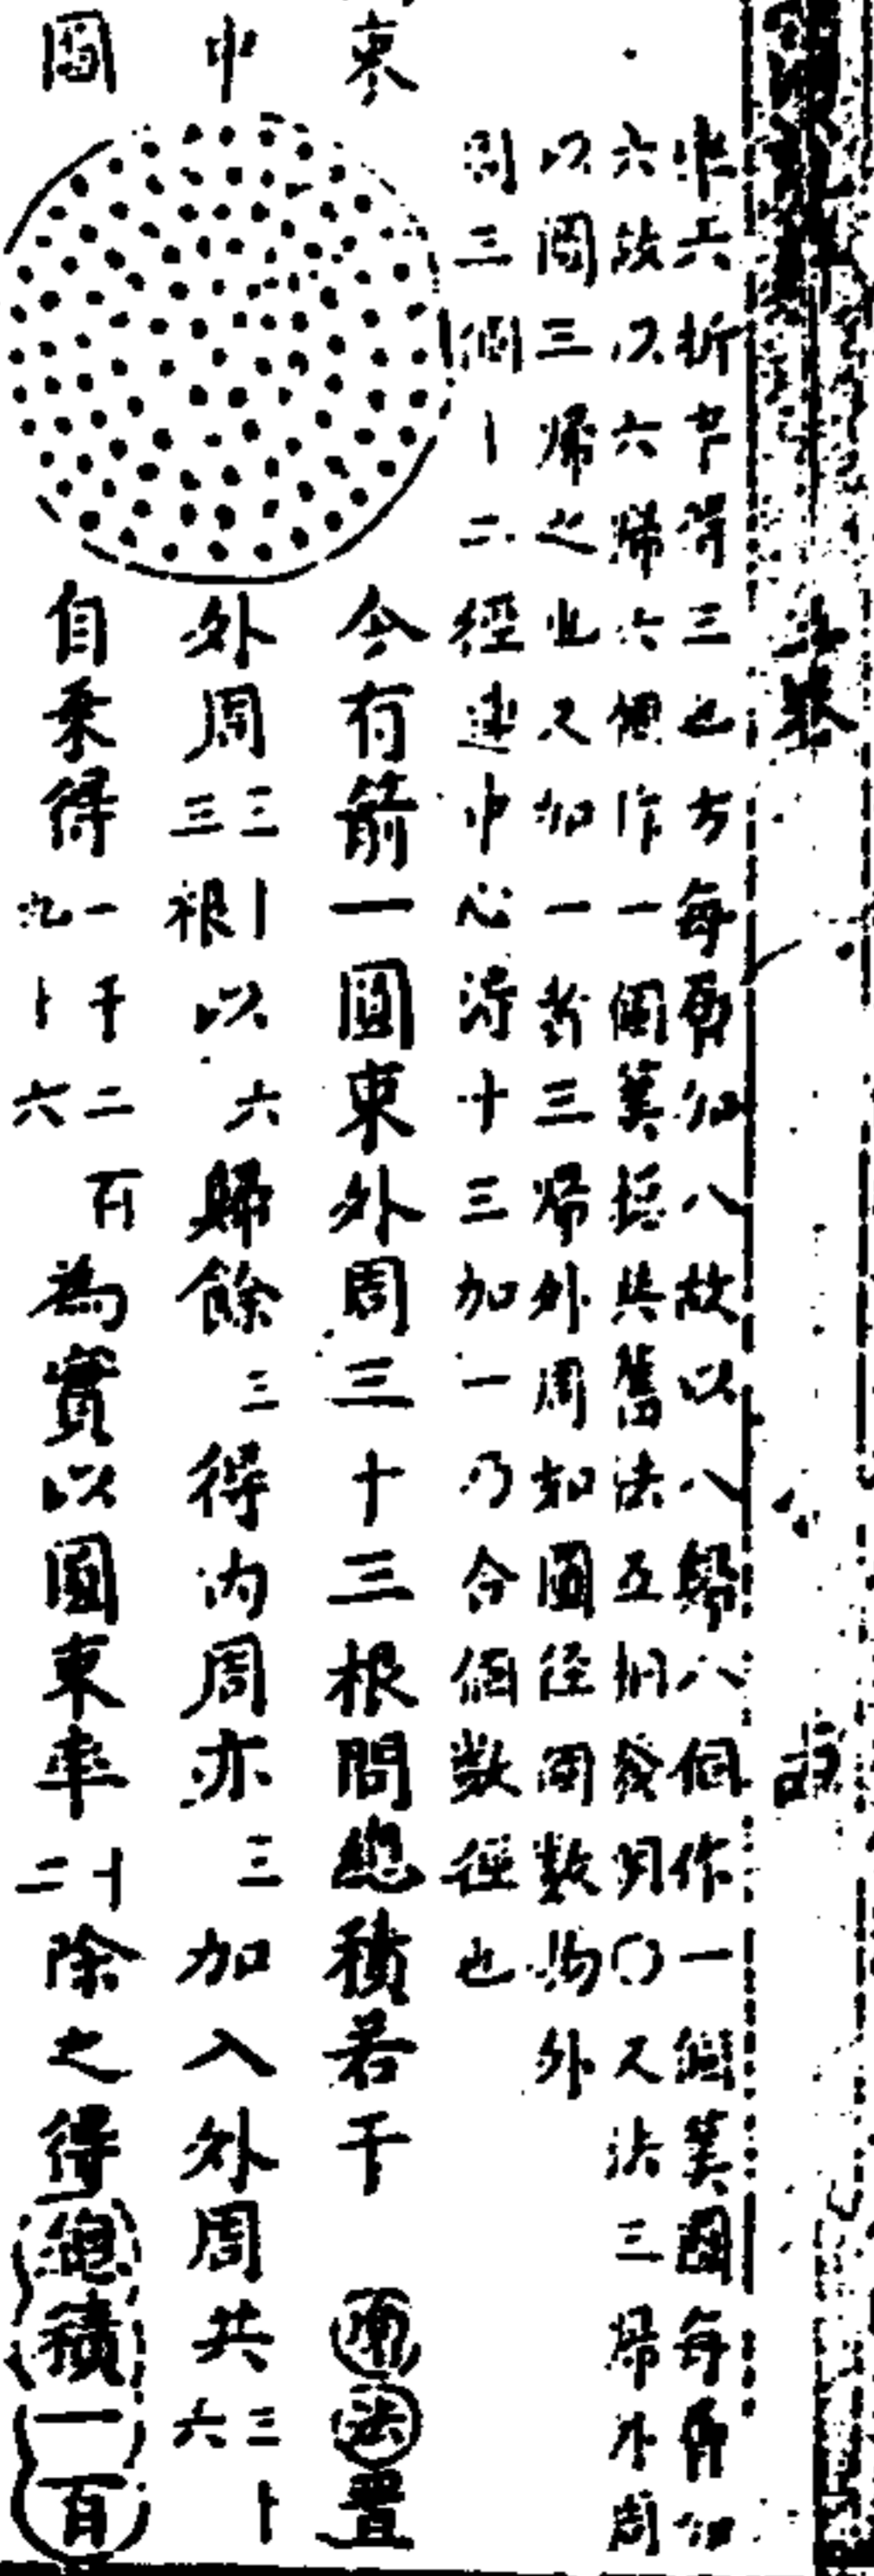 五卷
非共折半得三也方每層加八故以八歸八個作一個筭圓每層加
六故以六歸六個作一個筭揔與舊法互相發明〇又法三歸外周
以圓三歸之也又加一者三歸外周如圓徑周數為外
周三個十二徑連中心得十三加一乃合個數徑也
束中圓
今有箭一圓束外周三十三根問總積若干 原法置
外周三十三根以六歸餘三得內周亦三加入外周共三十六
自乘得一千二百九十六為實以圓束率十二除之得總積一百